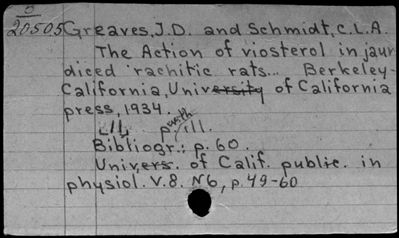 O
20505 Greaves, J.D. and Schmidt, C.L.A.
The Action of viosterol in jaun
diced rachitic rats... Berkeley-
California, University of California
press, 1934.
p. with ill.
Bibliogr.: p. 60.
Univers. of Calif. public. in
physiol. V.8. N6, p. 49-60